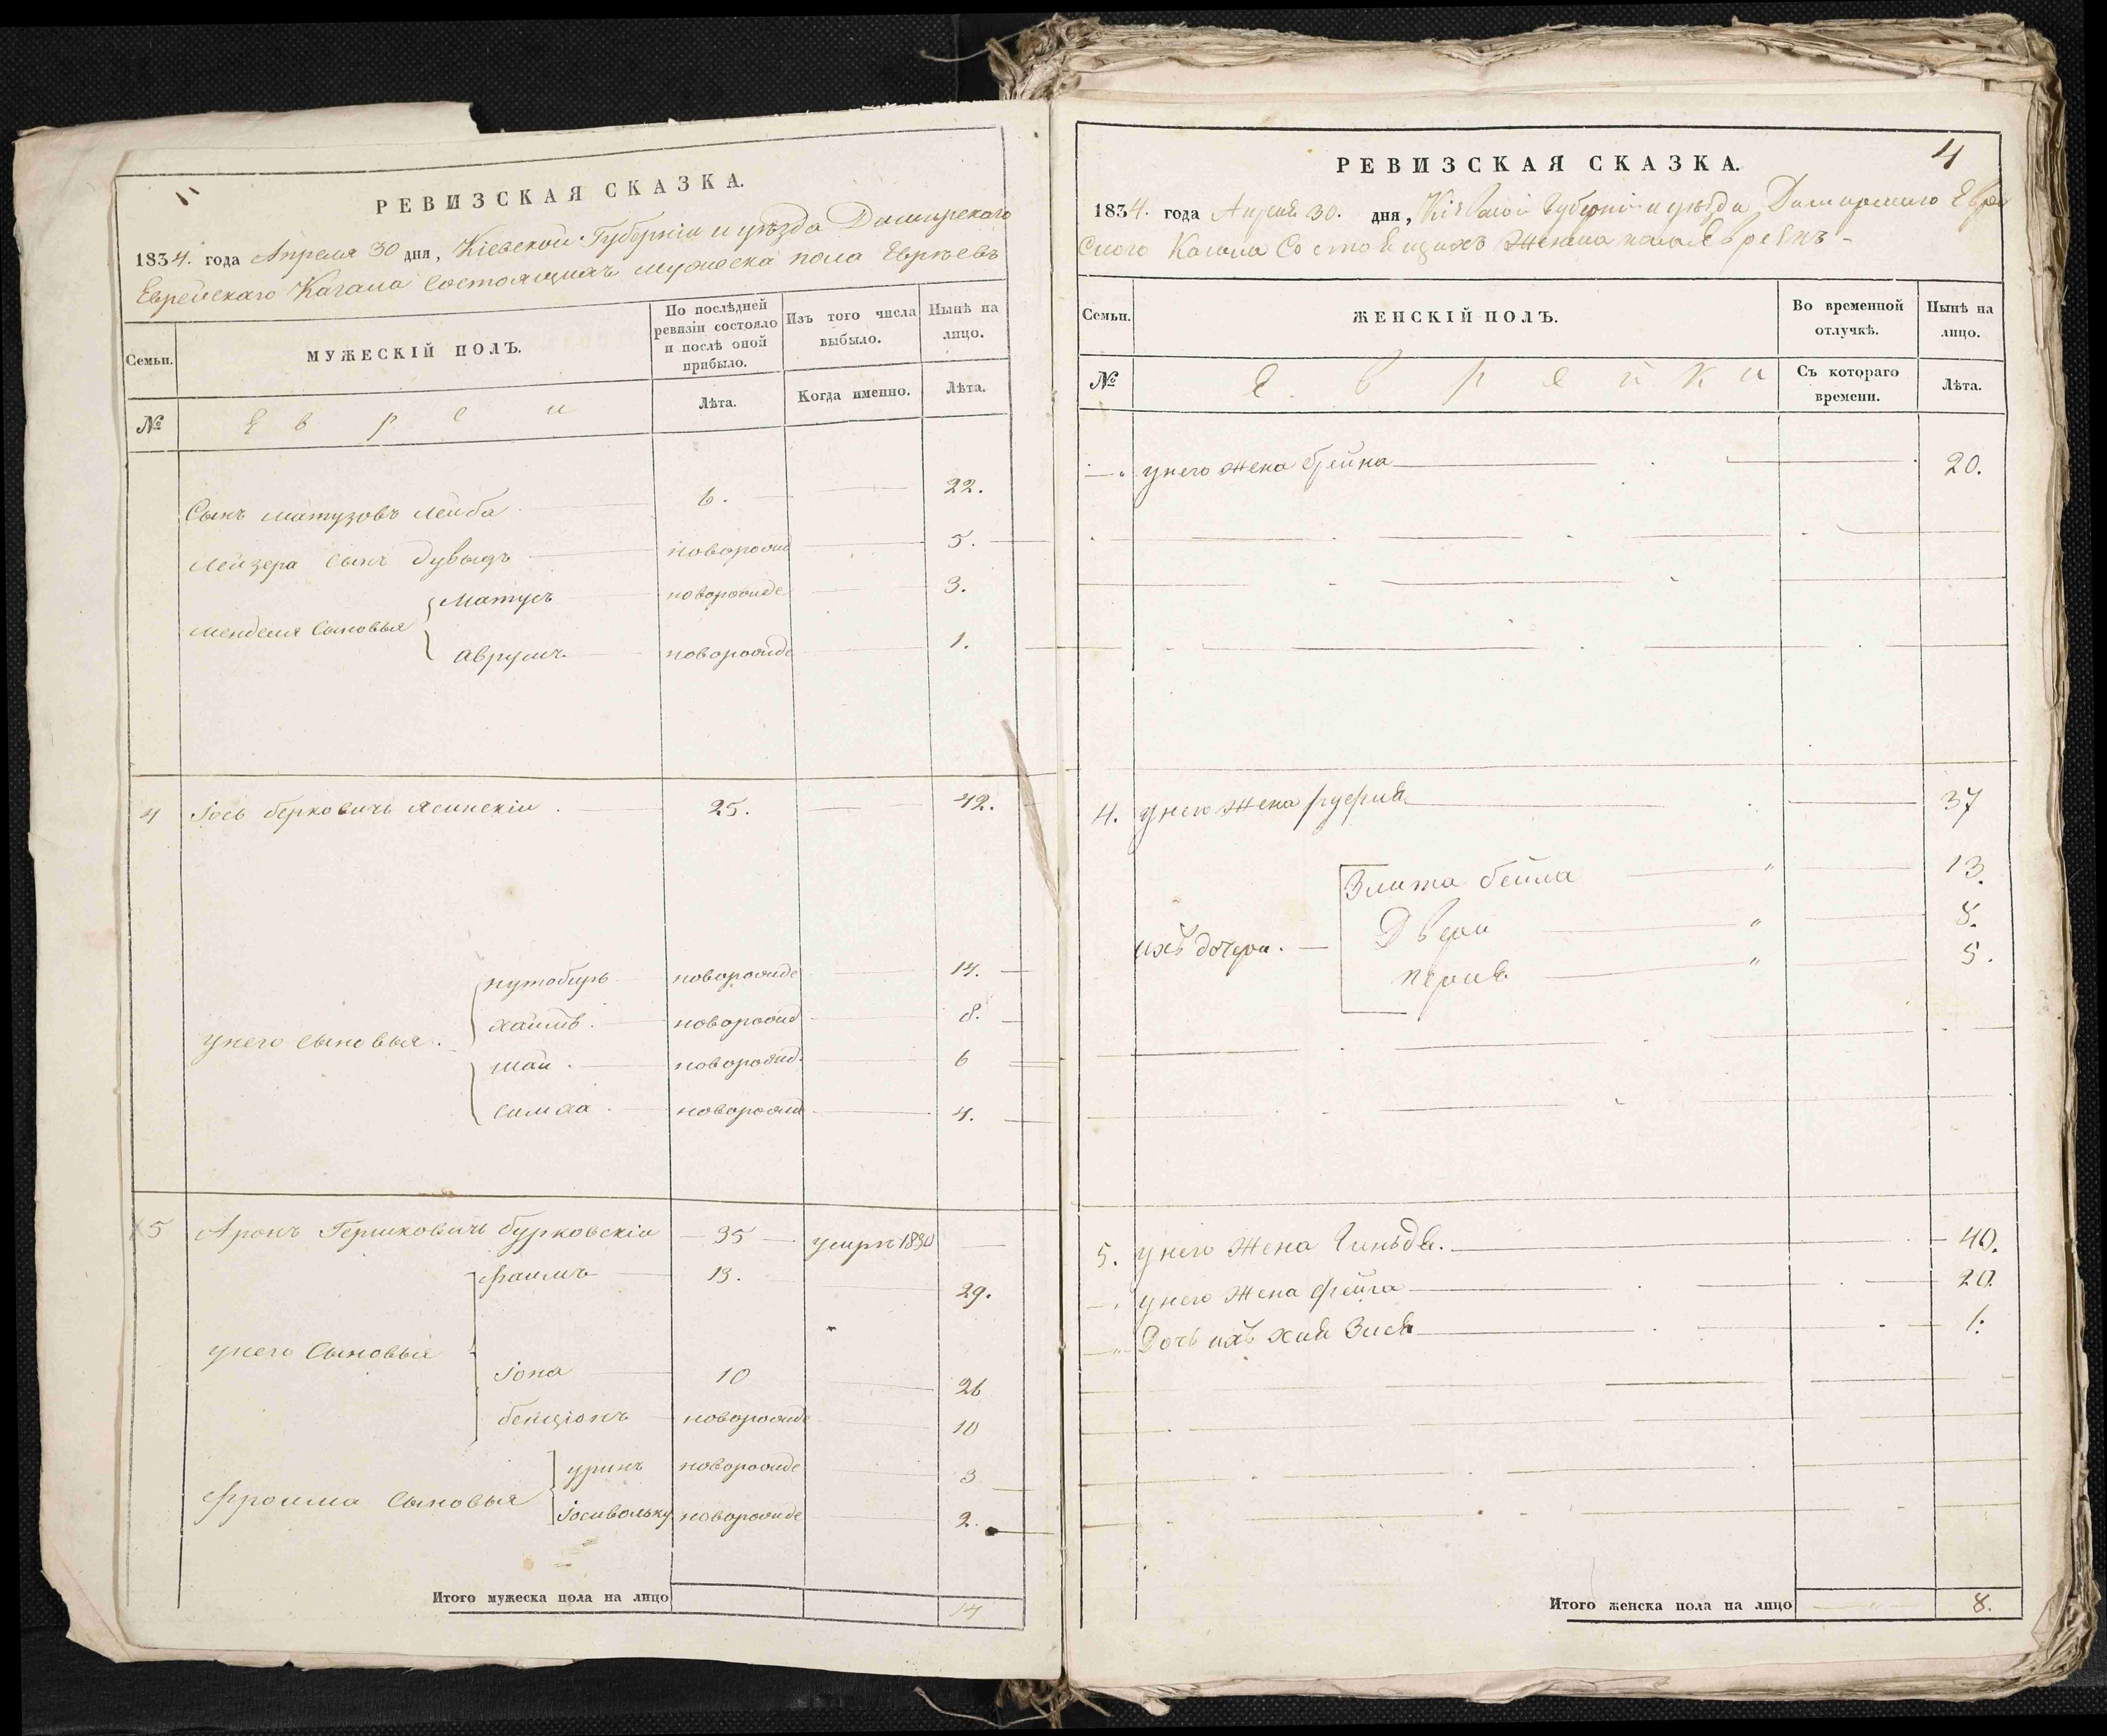 РЕВИЗСКАЯ СКАЗКА.
1834. года Апреля 30 дня, Кіевской Губерніи и уѣзда Дымирскаго
Еврейскаго Кагала Состоящихъ мужеска пола Евреевъ
Семьи. МУЖЕСКІЙ ПОЛЪ. По послѣдней ревизіи состояло и послѣ оной прибыло. Изъ того числа выбыло. Нынѣ на лицо.
№ Евреи Лѣта. Когда именно. Лѣта.
Сынъ матузовъ лейба 6. 22.
лейзера сынъ дувыдъ новорожд 5.
менделя сыновья матусъ новорожде 3.
аврумъ новорожде 1.
4 Іось берковичъ ясинскіи 25. 42.
унего сыновья нутобиръ новорожде 14.
хаимъ новорожд 8.
шаи новорожд. 6
симха новорожд 4.
5 Аронъ Гершковичъ бурковскіи 35 умръ 1830
унего сыновья фраимъ 13. 29.
іона 10 26
бенціонъ новорожде 10
фроима сыновья уринъ новорожде 3
новорожде 2.
Итого мужеска пола на лицо 14
РЕВИЗСКАЯ СКАЗКА. 4
1834. года Апреля 30. дня, Кіевской Губерніи и уѣзда Дымирскаго Еврей
Скаго Кагала Состоящихъ Женска пола Евреекъ
Семьи. ЖЕНСКІЙ ПОЛЪ. Во временной отлучкѣ. Нынѣ на лицо.
№ Еврейки Съ котораго времени. Лѣта.
унего жена брейна 20.
4. унего жена 37
ихъ дочери. Злата бейла 13.
Двери 8.
перля 5.
5. унего жена 40.
унего жена фейга 20.
Дочь ихъ хая Зися 1.
Итого женска пола на лицо 8.